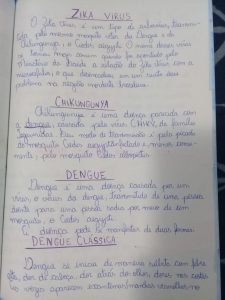 ZIKA VIRUS
O Zika Virus é um tipo de
pelo mesmo mosquito da Dengue e da
Chikungunya, o Aedes aegypti. O nome desse vírus
a relação do Zika Virus com a
microcefalia, o que desencadeou em um surto desse
problema na região nordeste brasileira.
CHIKUNGUNYA
Chikungunya é uma doença parecida com
a dengue, causada pelo vírus CHIKV, da família
Togaviridae. Seu modo de transmissão é pela picada
do mosquito Aedes aegypti infectado e, menos comu-
mente, pelo mosquito Aedes albopictus.
DENGUE
Dengue é uma doença causada por um
vírus, o vírus da dengue, transmitido de uma pessoa
doente para uma pessoa sadia por meio de um
mosquito, o Aedes aegypti.
A doença pode se manifestar de duas formas:
DENGUE CLÁSSICA
Dengue se inicia de maneira súbita com febre
dor de cabeça, dor atrás dos olhos, dores nas costas
às vezes aparecem manchas vermelhas no